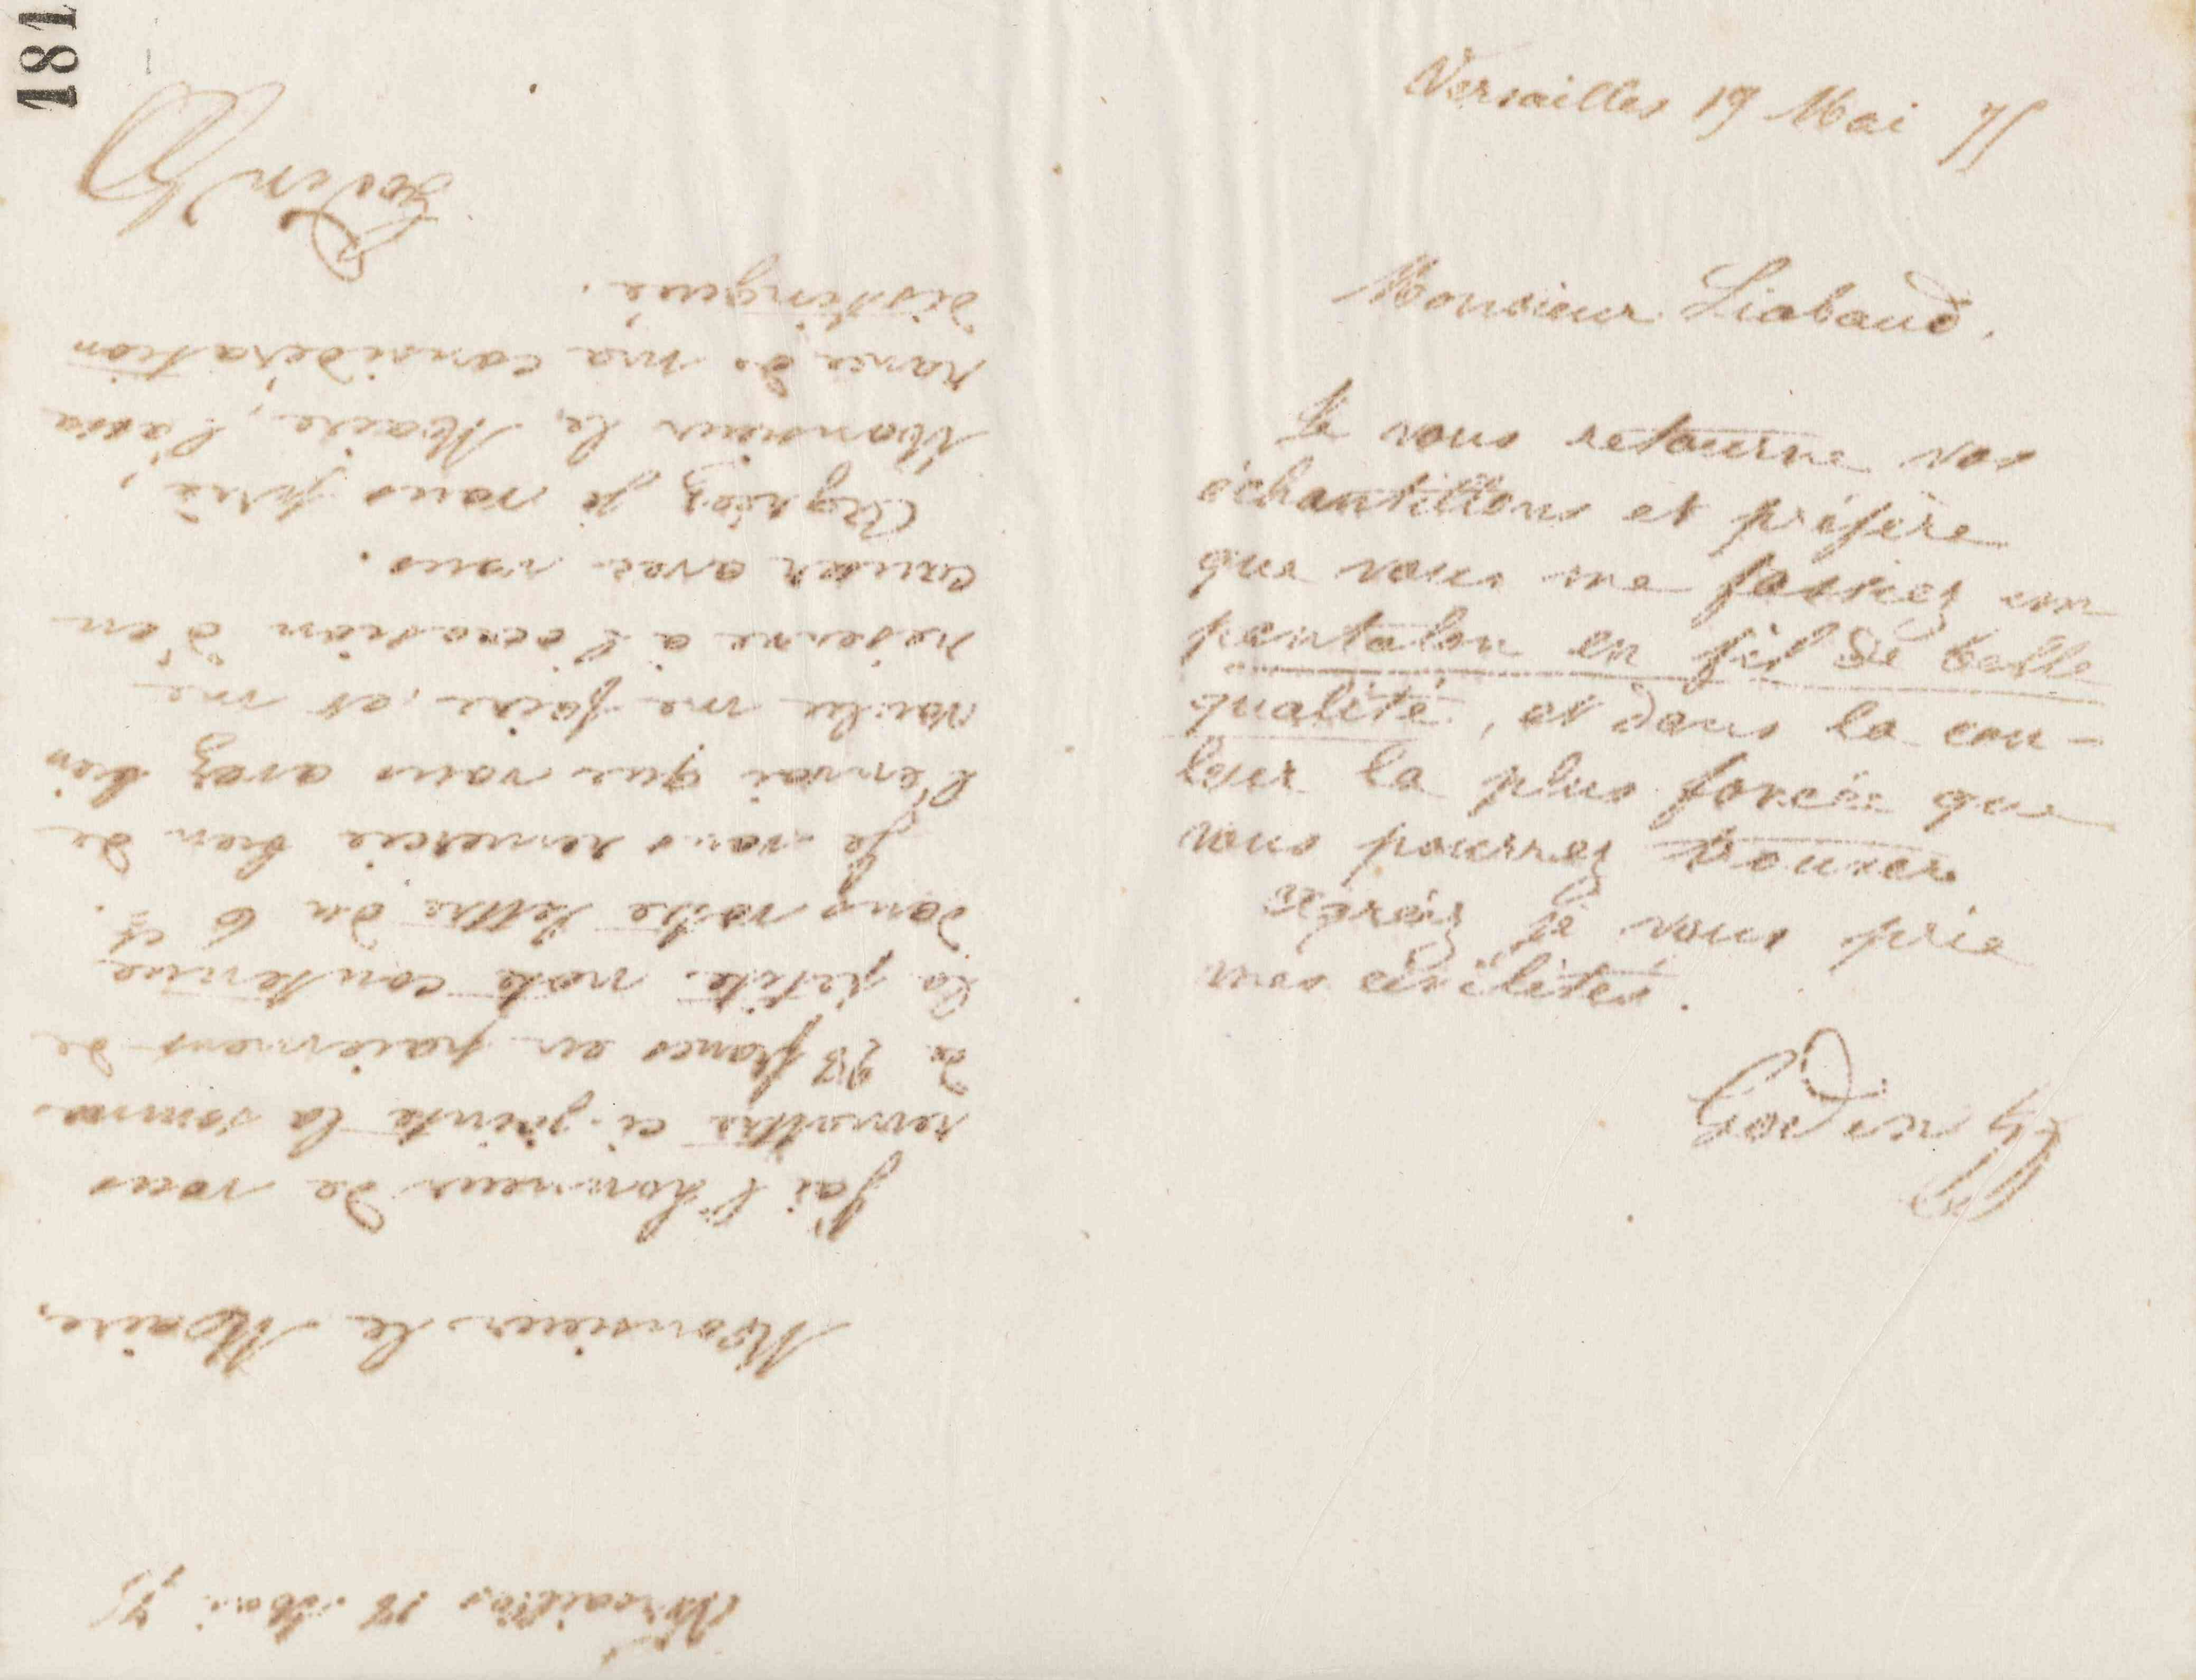 181
Versailles 18 Mai 75
Monsieur le Maire,
J'ai l'honneur de vous
remettre ci-jointe la somme
de francs en paiement de
la petite note contenue
dans votre lettre du 6 ct.
Je vous remercie bien de
l'envoi que vous avez bien
voulu me faire, et me
reserve à l'occasion d'en
causer avec vous.
Agréez, je vous prie,
Monsieur le Maire, l'assu
rance de ma considération
distinguée.
Godin
Versailles 19 Mai 75
Monsieur Liabaud.
Je vous retourne vos
échantillons et préfère
que vous me fassiez un
pantalon en fil de belle
qualité, et dans la cou-
leur la plus foncée que
vous pourrez trouver
Agréez je vous prie
mes civilités.
Godin